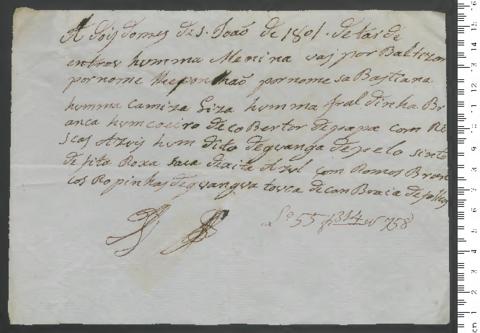 A dois domes de S. João de 1801. de tarde
entrou humma Menina vay por Baltizar
por nome poem por nome sa Bastiana
humma Camiza Liza humma fraldinha Br
anca hum coeiro de coBertor de papa com Re
scas Azuis hum dito de guanga de pelo sinto
de fita Roxa faca de xita Azul com Ramos Bran
cos Ropinhas de guangua touca de can Braia de folhos
Lo 55 f 314 No 758